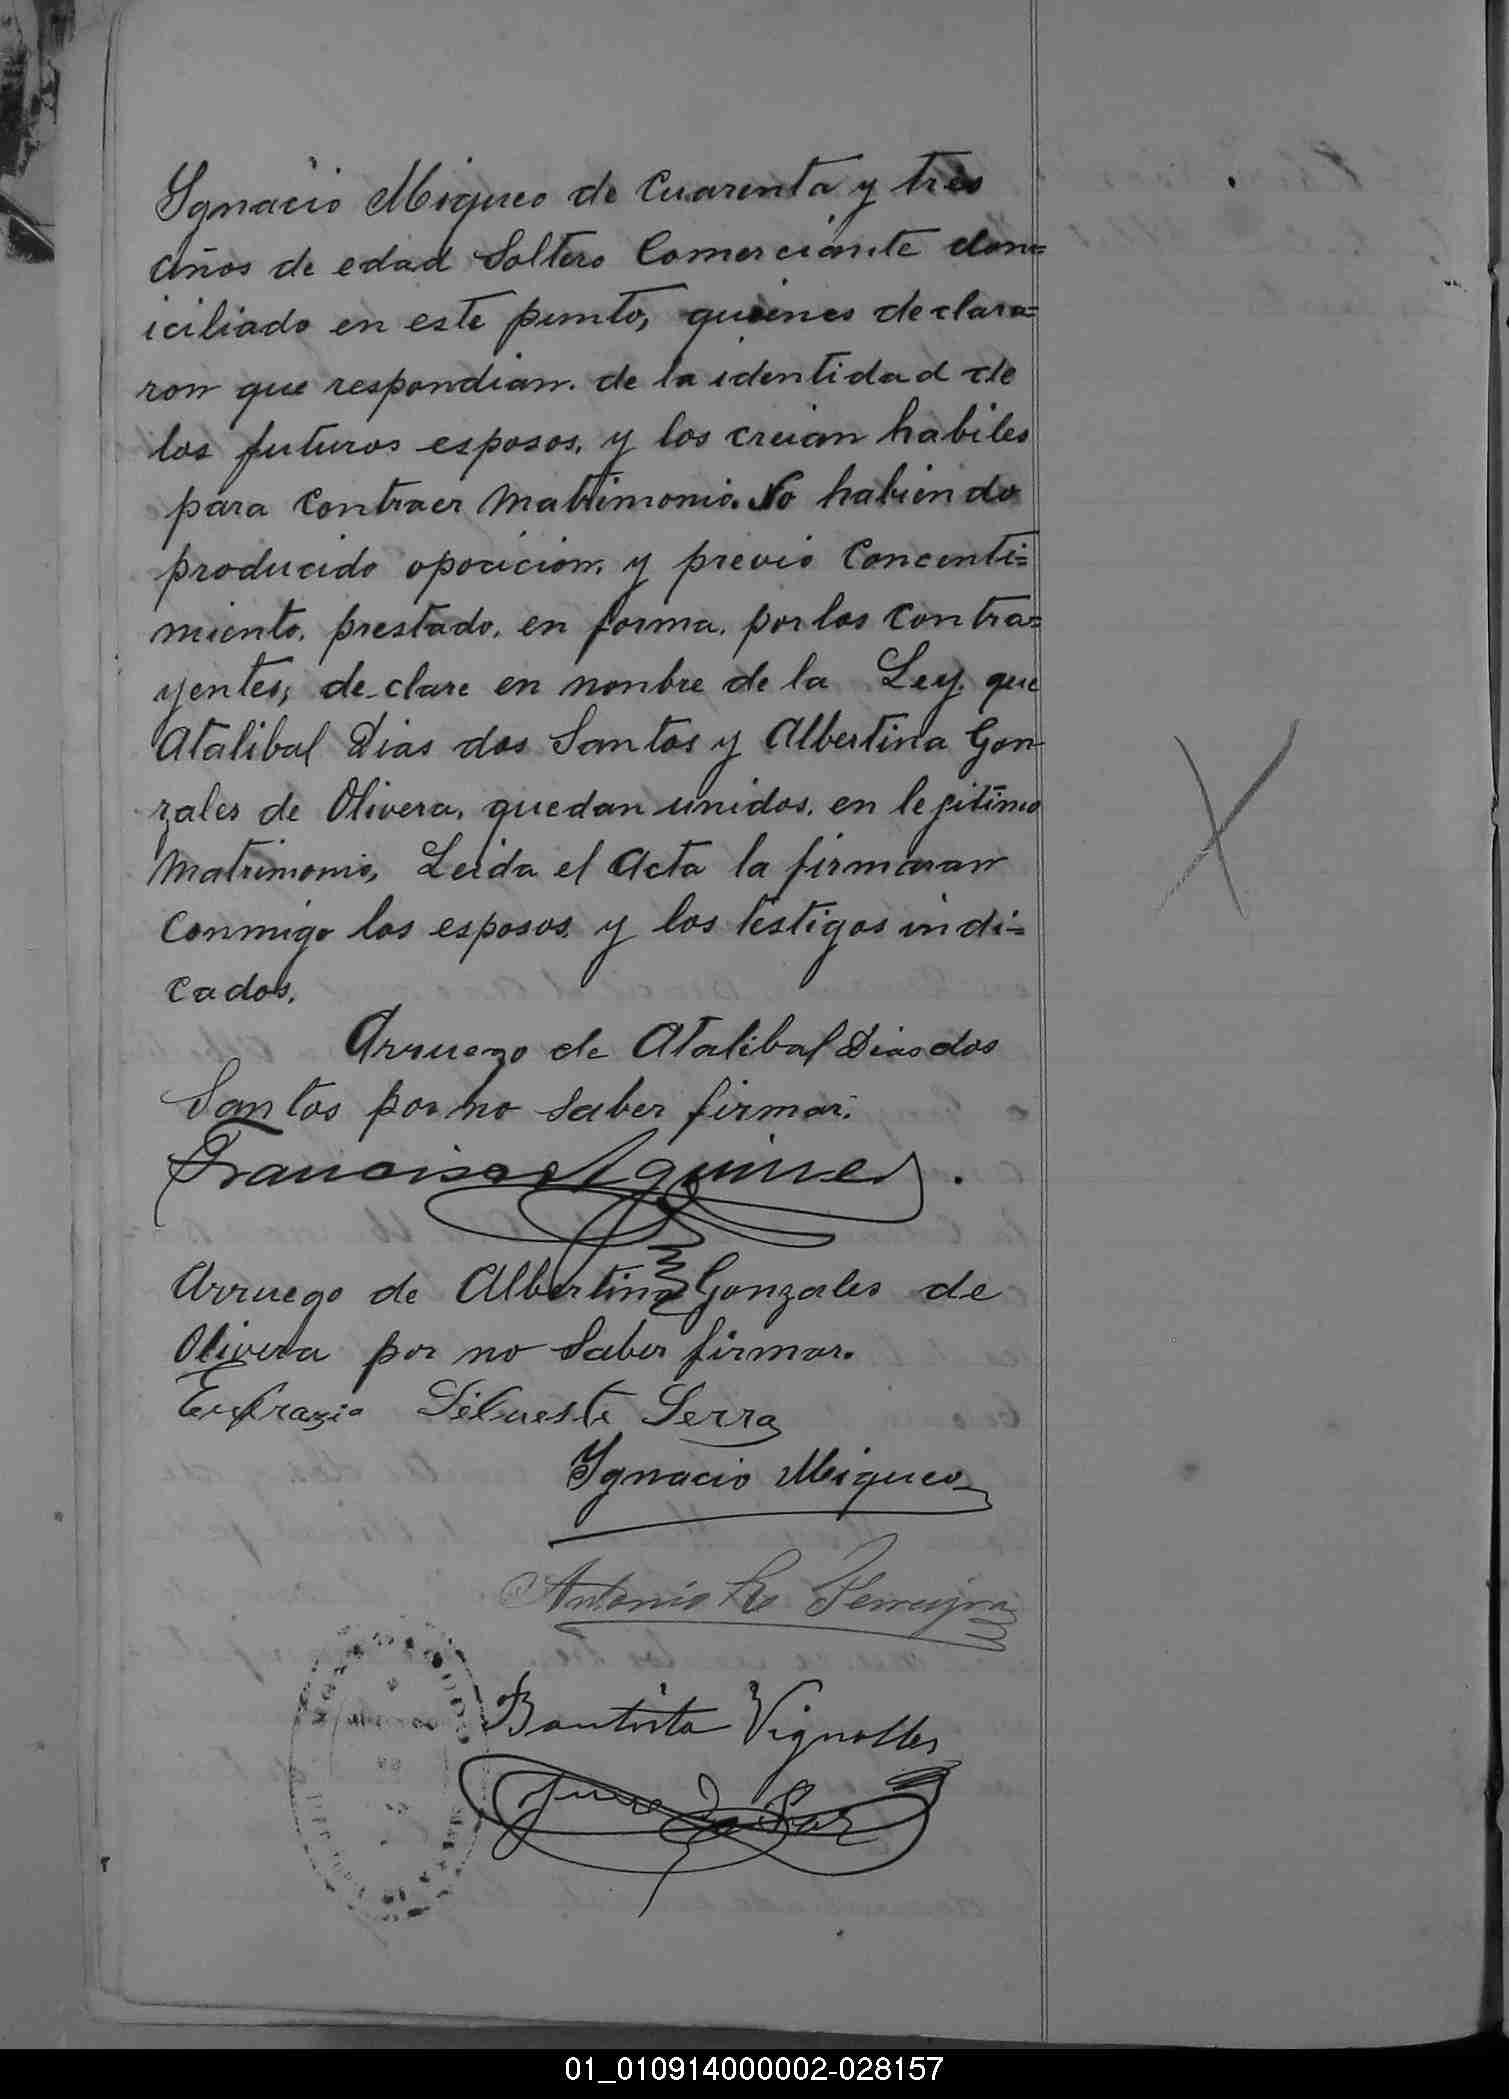 Ygnacio Miqueo de Cuarenta y tres
años de edad Soltero Comerciante dom=
iciliado en este punto, quienes declara=
ron que respondian. de la identidad de
los futuros esposos, y los creian habiles
para Contraer Matrimonio. No habiendo
producido opocicion, y previo Concenti=
miento. prestado. en forma. por los Contra=
yentes, de clare en nonbre de la Ley. que
Atalibal Dias dos Santos y Albertina Gon
zales de Olivera, quedan unidos. en legitimo
Matrimonio, Leida el Acta la firmaran
Conmigo los esposos y los testigos indi=
cados.
Arruego de Atalibal Dias dos
Santos por no saber firmar.
Francisco Aguirre
Arruego de Albertina Gonzales de
Olivera por no saber firmar.
Eufrazio Silueste Serra
Ygnacio Miqueo
Antonio Ferreyra
Bautista Vignolles
Juez de Paz
01_010914000002-028157